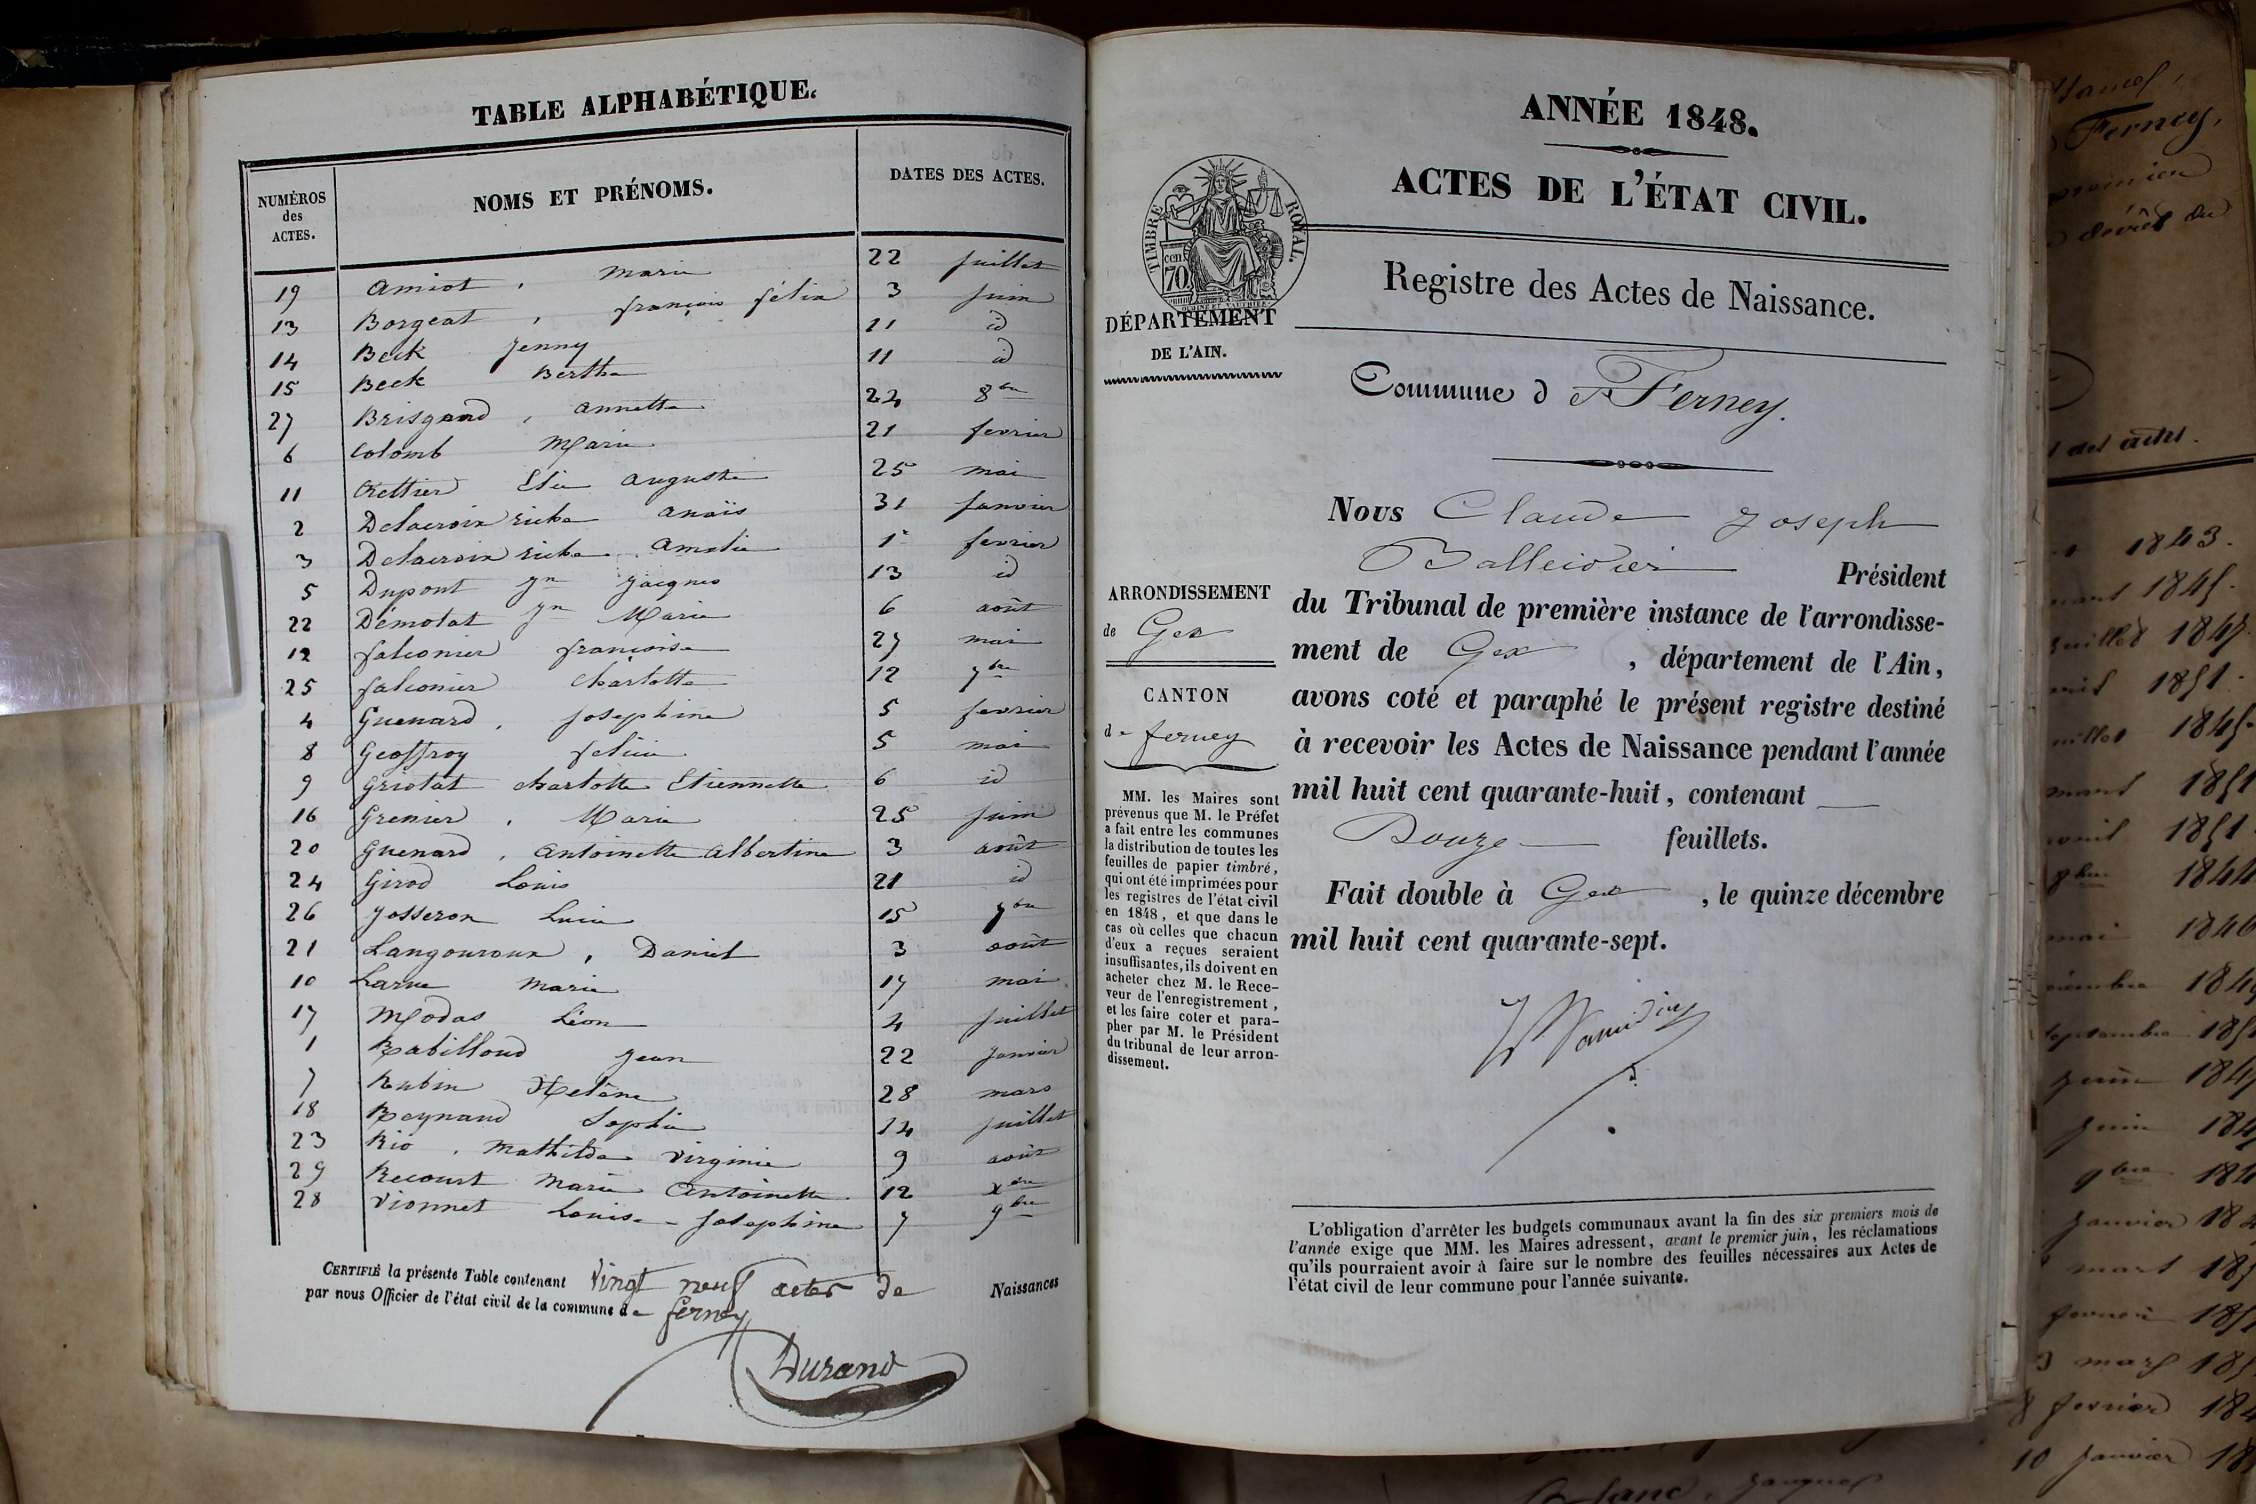 TABLE ALPHABÉTIQUE.
NUMÉROS des ACTES. NOMS ET PRÉNOMS. DATES DES ACTES.
19 Amiot, Marie 22 juillet
13 Borgeat, françois félix 3 juin
14 Beck Jenny 11 id
15 Beck Bertha 11 id
27 Brisgand, annette 22 8bre
6 Colomb Marie 21 fevrier
11 Elie Auguste 25 mai
2 Delacroix anaïs 31 Janvier
3 Delacroix Amelie 1er fevrier
5 Dupont Jn Jacques 13 id
22 Démolat Jn Marie 6 août
12 falconier françoise 27 mai
25 falconier Charlotte 12 7bre
4 Guenard, Josephine 5 fevrier
8 Geoffroy felicie 5 mai
9 Griotat charlotte Etiennette 6 id
16 Grenier, Marie 25 juin
20 Guenard, antoinette albertine 3 août
24 Girod Louis 21 id
26 Josseron Lucie 15 7bre
21 Langouroux, Daniel 3 août
10 Larue Marie 17 mai
17 Modas Léon 4 juillet
1 Rabilloud Jean 22 Janvier
7 Rubin Helène 28 mars
18 Reynaud Sophie 14 juillet
23 Rio, Mathilde virginie 9 août
29 Recourt Marie Antoinette 12 xbre
28 Vionnet Louise-Josephine 7 9bre
CERTIFIÉ la présente Table contenant vingt neuf actes de Naissances
par nous Officier de l'état civil de la commune de ferney
Durand
ANNÉE 1848.
ACTES DE L'ÉTAT CIVIL.
TIMBRE ROYAL.
cen 70
DÉPARTEMENT
DE L'AIN.
Registre des Actes de Naissance.
Commune d e Ferney.
Nous Claude Joseph
Balleidier Président
du Tribunal de première instance de l'arrondisse-
ment de Gex, département de l'Ain,
avons coté et paraphé le présent registre destiné
à recevoir les Actes de Naissance pendant l'année
mil huit cent quarante-huit, contenant
Douze feuillets.
Fait double à Gex, le quinze décembre
mil huit cent quarante-sept.
ARRONDISSEMENT
de Gex
CANTON
de ferney
MM. les Maires sont
prévenus que M. le Préfet
a fait entre les communes
la distribution de toutes les
feuilles de papier timbré,
qui ont été imprimées pour
les registres de l'état civil
en 1848, et que dans le
cas où celles que chacun
d'eux a reçues seraient
insuffisantes, ils doivent en
acheter chez M. le Rece-
veur de l'enregistrement,
et les faire coter et para-
pher par M. le Président
du tribunal de leur arron-
dissement.
L'obligation d'arrêter les budgets communaux avant la fin des six premiers mois de
l'année exige que MM. les Maires adressent, avant le premier juin, les réclamations
qu'ils pourraient avoir à faire sur le nombre des feuilles nécessaires aux Actes de
l'état civil de leur commune pour l'année suivante.
Ferney,
1843.
1845.
1851
1845
mars 1851
1851
8bre 1844
mai 1846
juin
9bre
janvier
mars
3 mars
8 fevrier
10 Janvier